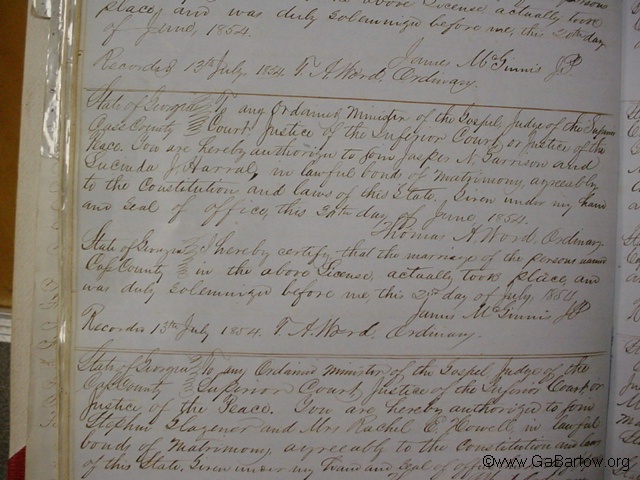 place, and was duly solemnized before me, this 20th day
of June, 1854.
James McGinnis JP.
Recorded 13th July 1854. T. A. Word, Ordinary.
State of Georgia To any Ordained Minister of the Gospel, Judge of the Superior
Cass County Court, Justice of the Inferior Court, or Justice of the
Peace. You are hereby authorize to Join Jasper N. Garrison and
Lucinda J. Harral, in lawful bonds of matrimony, agreeably
to the Constitution and laws of this State, Given under my hand
and Seal of office, this 30th day of June, 1854.
Thomas A. Word. Ordinary
State of Georgia I hereby certify, that the marriage of the persons named
Cass County in the above License, actually took place, and
was duly solemnized before me, this 2nd day of July, 1854.
James McGinnis JP
Recorded 13th July 1854. T. A. Word, Ordinary.
State of Georgia To any Ordained Minister of the Gospel, Judge of the
Cass County Superior Court, Justice of the Inferior Court, or
Justice of the Peace. You are hereby authorized to join
Stephen Glazener and Mrs Rachel E. Howell, in lawful
bonds of Matrimony, agreeably to the Constitution and laws
of this State, Given under my hand and Seal of office
©www.GaBartow.org